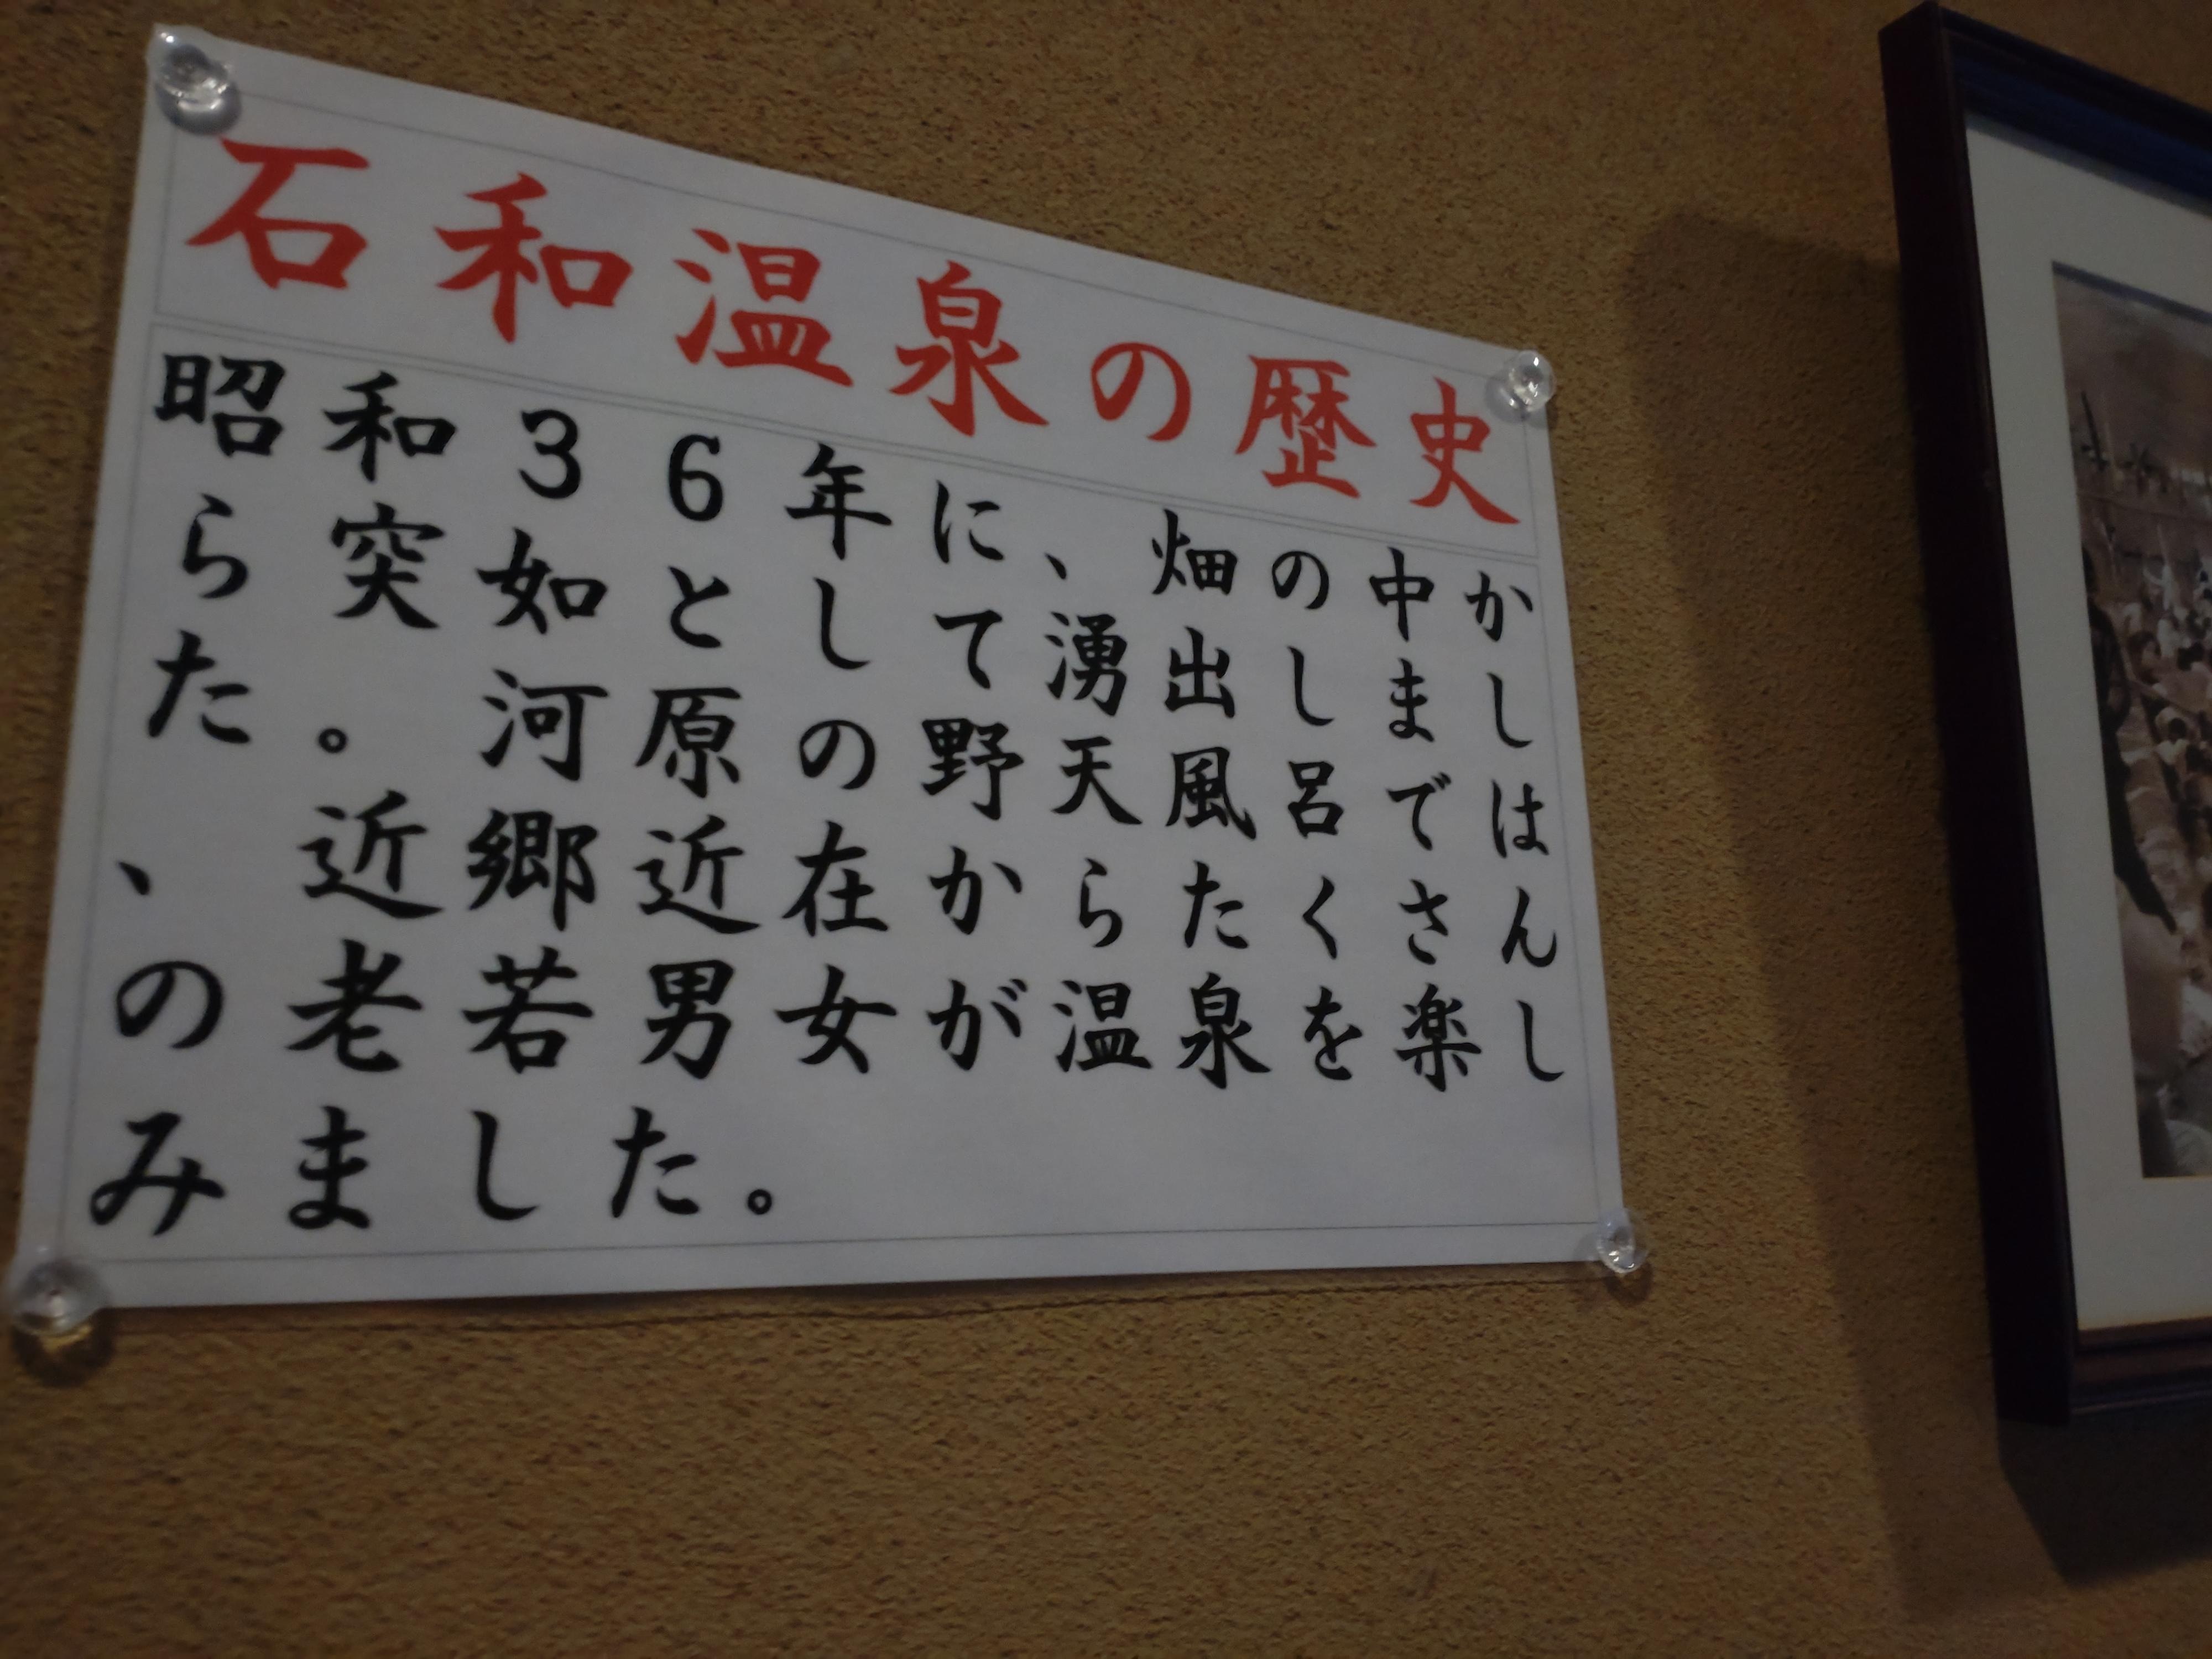 石和温泉の歴史
昭和３６年に、畑の中か
ら突如として湧出しまし
た。河原の野天風呂では
、近郷近在からたくさん
の老若男女が温泉を楽し
みました。